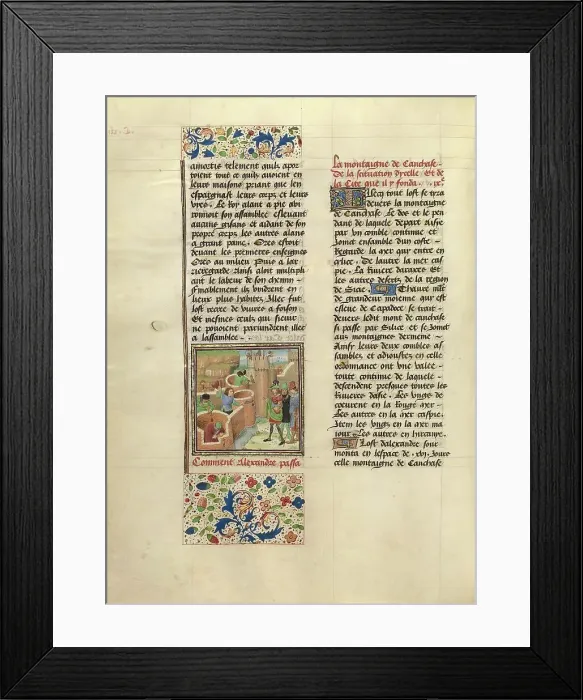 amortis telement quilz apor
toient tout ce quilz avoient en
leurs maisons priant que len
espargnast leurs corps et leurs
vyes. Le Roy alant a pie avi
ronnoit son assamblee eslevant
aucuns gisans et aidant de son
propre corps les autres alans
a grant paine. Ores estoit
devant les premieres enseignes
Ores au milieu Puis a lar
rieregarde Ainsy aloit multipli
ant le labeur de son chemin
finablement ilz vindrent en
lieux plus habitez Illec fut
lost recree de vivres a foison
Et mesmes ceulz qui suivir
ne povoient parvindrent illec
a lassamblee
Comment Alexandre passa
La montaigne de Canchase.
De la situation dycelle Et de
la Cite que il y fonda. ix.
Illecq tout lost se tyra
devers la montaigne
de Canchase Le dos et le pen
dant de laquele depart Asye
par vn comble continue et
Jomet ensamble dun coste
Regarde la mer qui entre en
De lautre la mer cas
pie. La Riviere daraxes Et
les autres desers de la region
de Sicie. Thaure mont
de grandeur moienne qui est
esleue de Capadoce se trait
devers ledit mont de canchase
si passe par Silice et se Jomet
aux montaignes dermenie
Ainsy leurs deux combles as
samblez et adioustez en celle
ordonnance ont vne valee
toute continue de laquele
descendent presques toutes les
Rivieres dasie. Les vnes de
coeurent en la Rouge mer
Les autres en la mer caspie.
Item les vnes en la mer ma
iour Les autres en hircanye.
Lost dalexandre sour
monta en lespace de .xvij. Jours
celle montaigne de Canchase